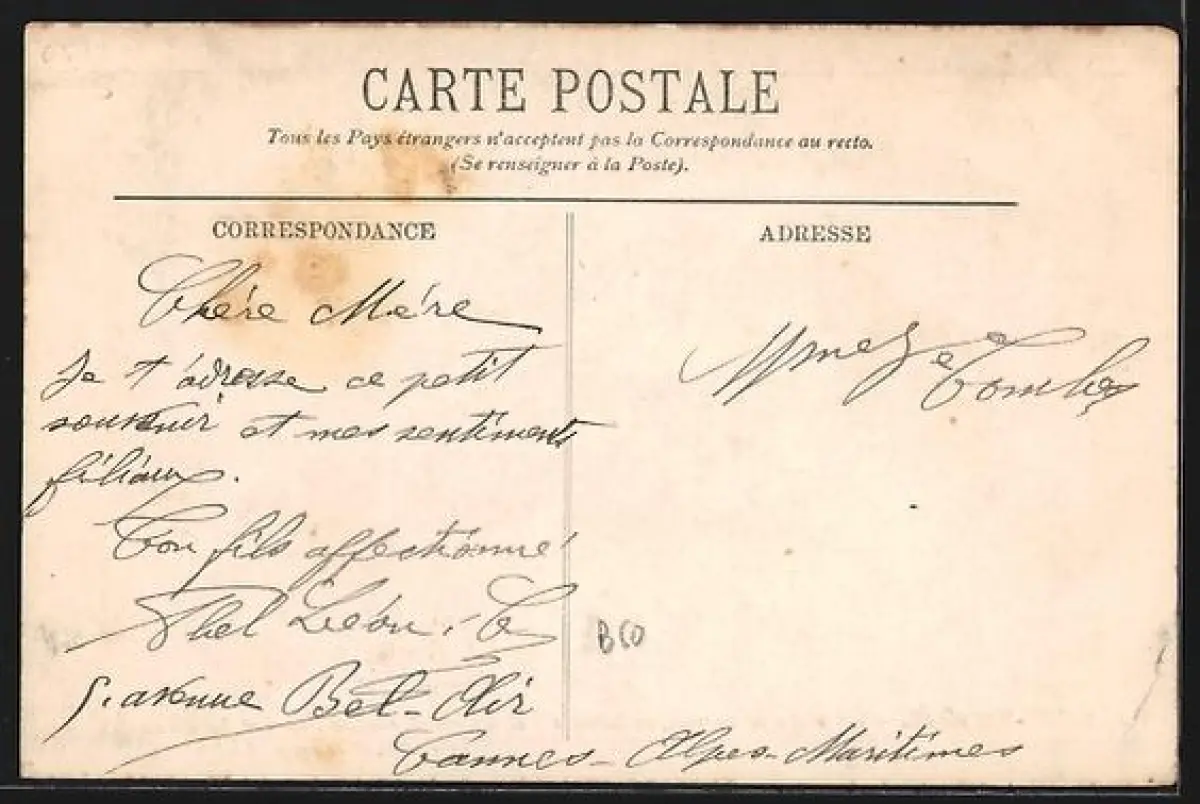 CARTE POSTALE
Tous les Pays étrangers n'acceptent pas la Correspondance au recto.
(Se renseigner à la Poste).
CORRESPONDANCE
Chére Mére
Je t'adresse ce petit
souvenir et mes sentiments
filiaux.
Ton fils affectionné
Léon. C
5. avenue Bel-Air
Cannes - Alpes-Maritimes
ADRESSE
Combes
B60